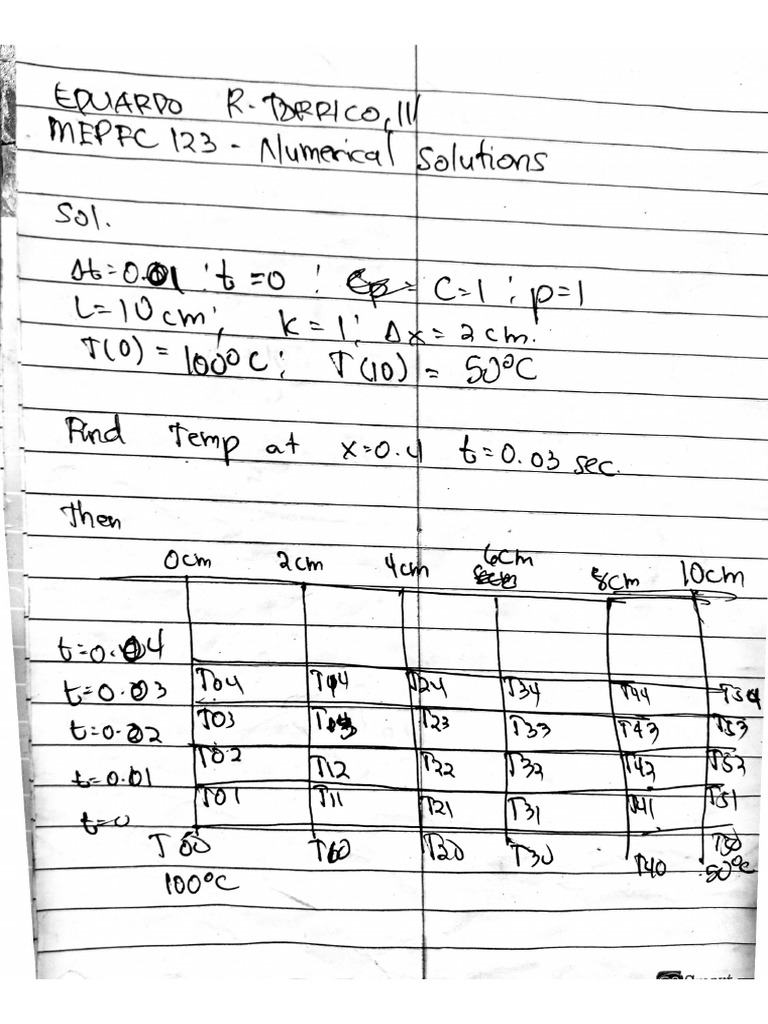 EDUARDO R. TORRICO, III
MEPFC 123 - Numerical Solutions
Sol.
Δt=0.01 ; t=0 ; C=1 ; p=1
L=10cm; k=1; Δx=2cm.
T(0) = 100°C; T(10) = 50°C
Find Temp at x=0.4 t=0.03 sec.
Then
0cm 2cm 4cm 6cm 8cm 10cm
t=0.04
t=0.03 T04 T14 T24 T34 T44 T54
t=0.02 T03 T13 T23 T33 T43 T53
t=0.01 T02 T12 T22 T32 T42 T52
t=0 T01 T11 T21 T31 T41 T51
T00 T10 T20 T30 T40 T50
100°C 50°C